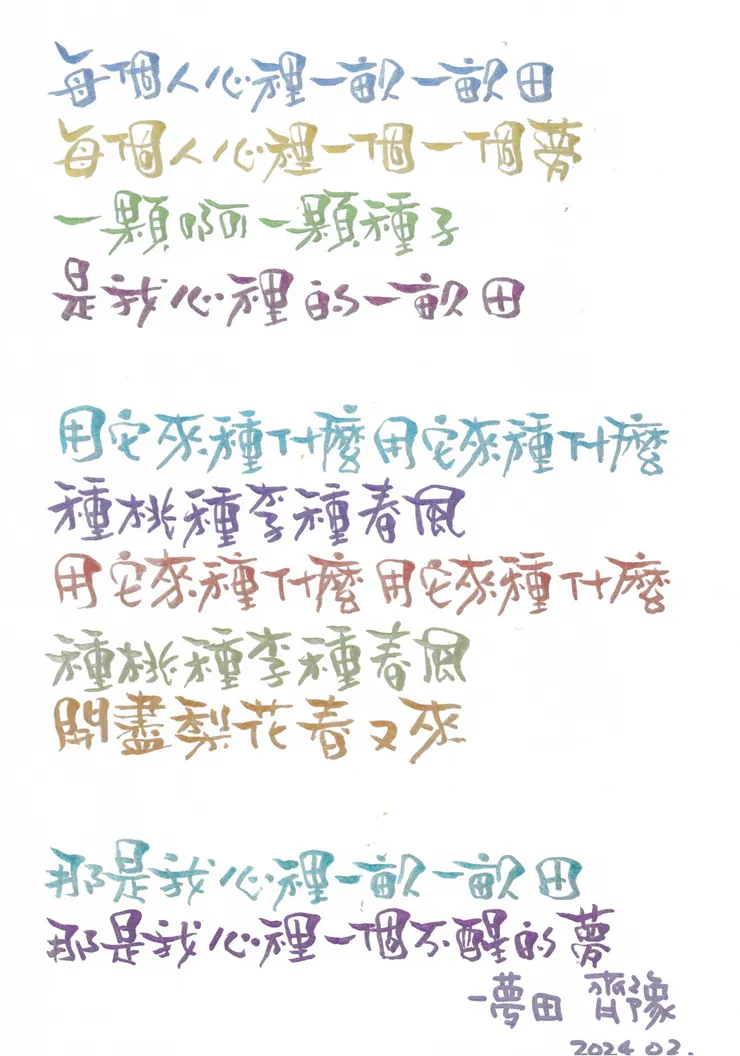 每個人心裡一畝一畝田
每個人心裡一個一個夢
一顆啊一顆種子
是我心裡的一畝田
用它來種什麼用它來種什麼
種桃種李種春風
用它來種什麼用它來種什麼
種桃種李種春風
開盡梨花春又來
那是我心裡一畝一畝田
那是我心裡一個不醒的夢
－夢田 齊豫
2024 02.